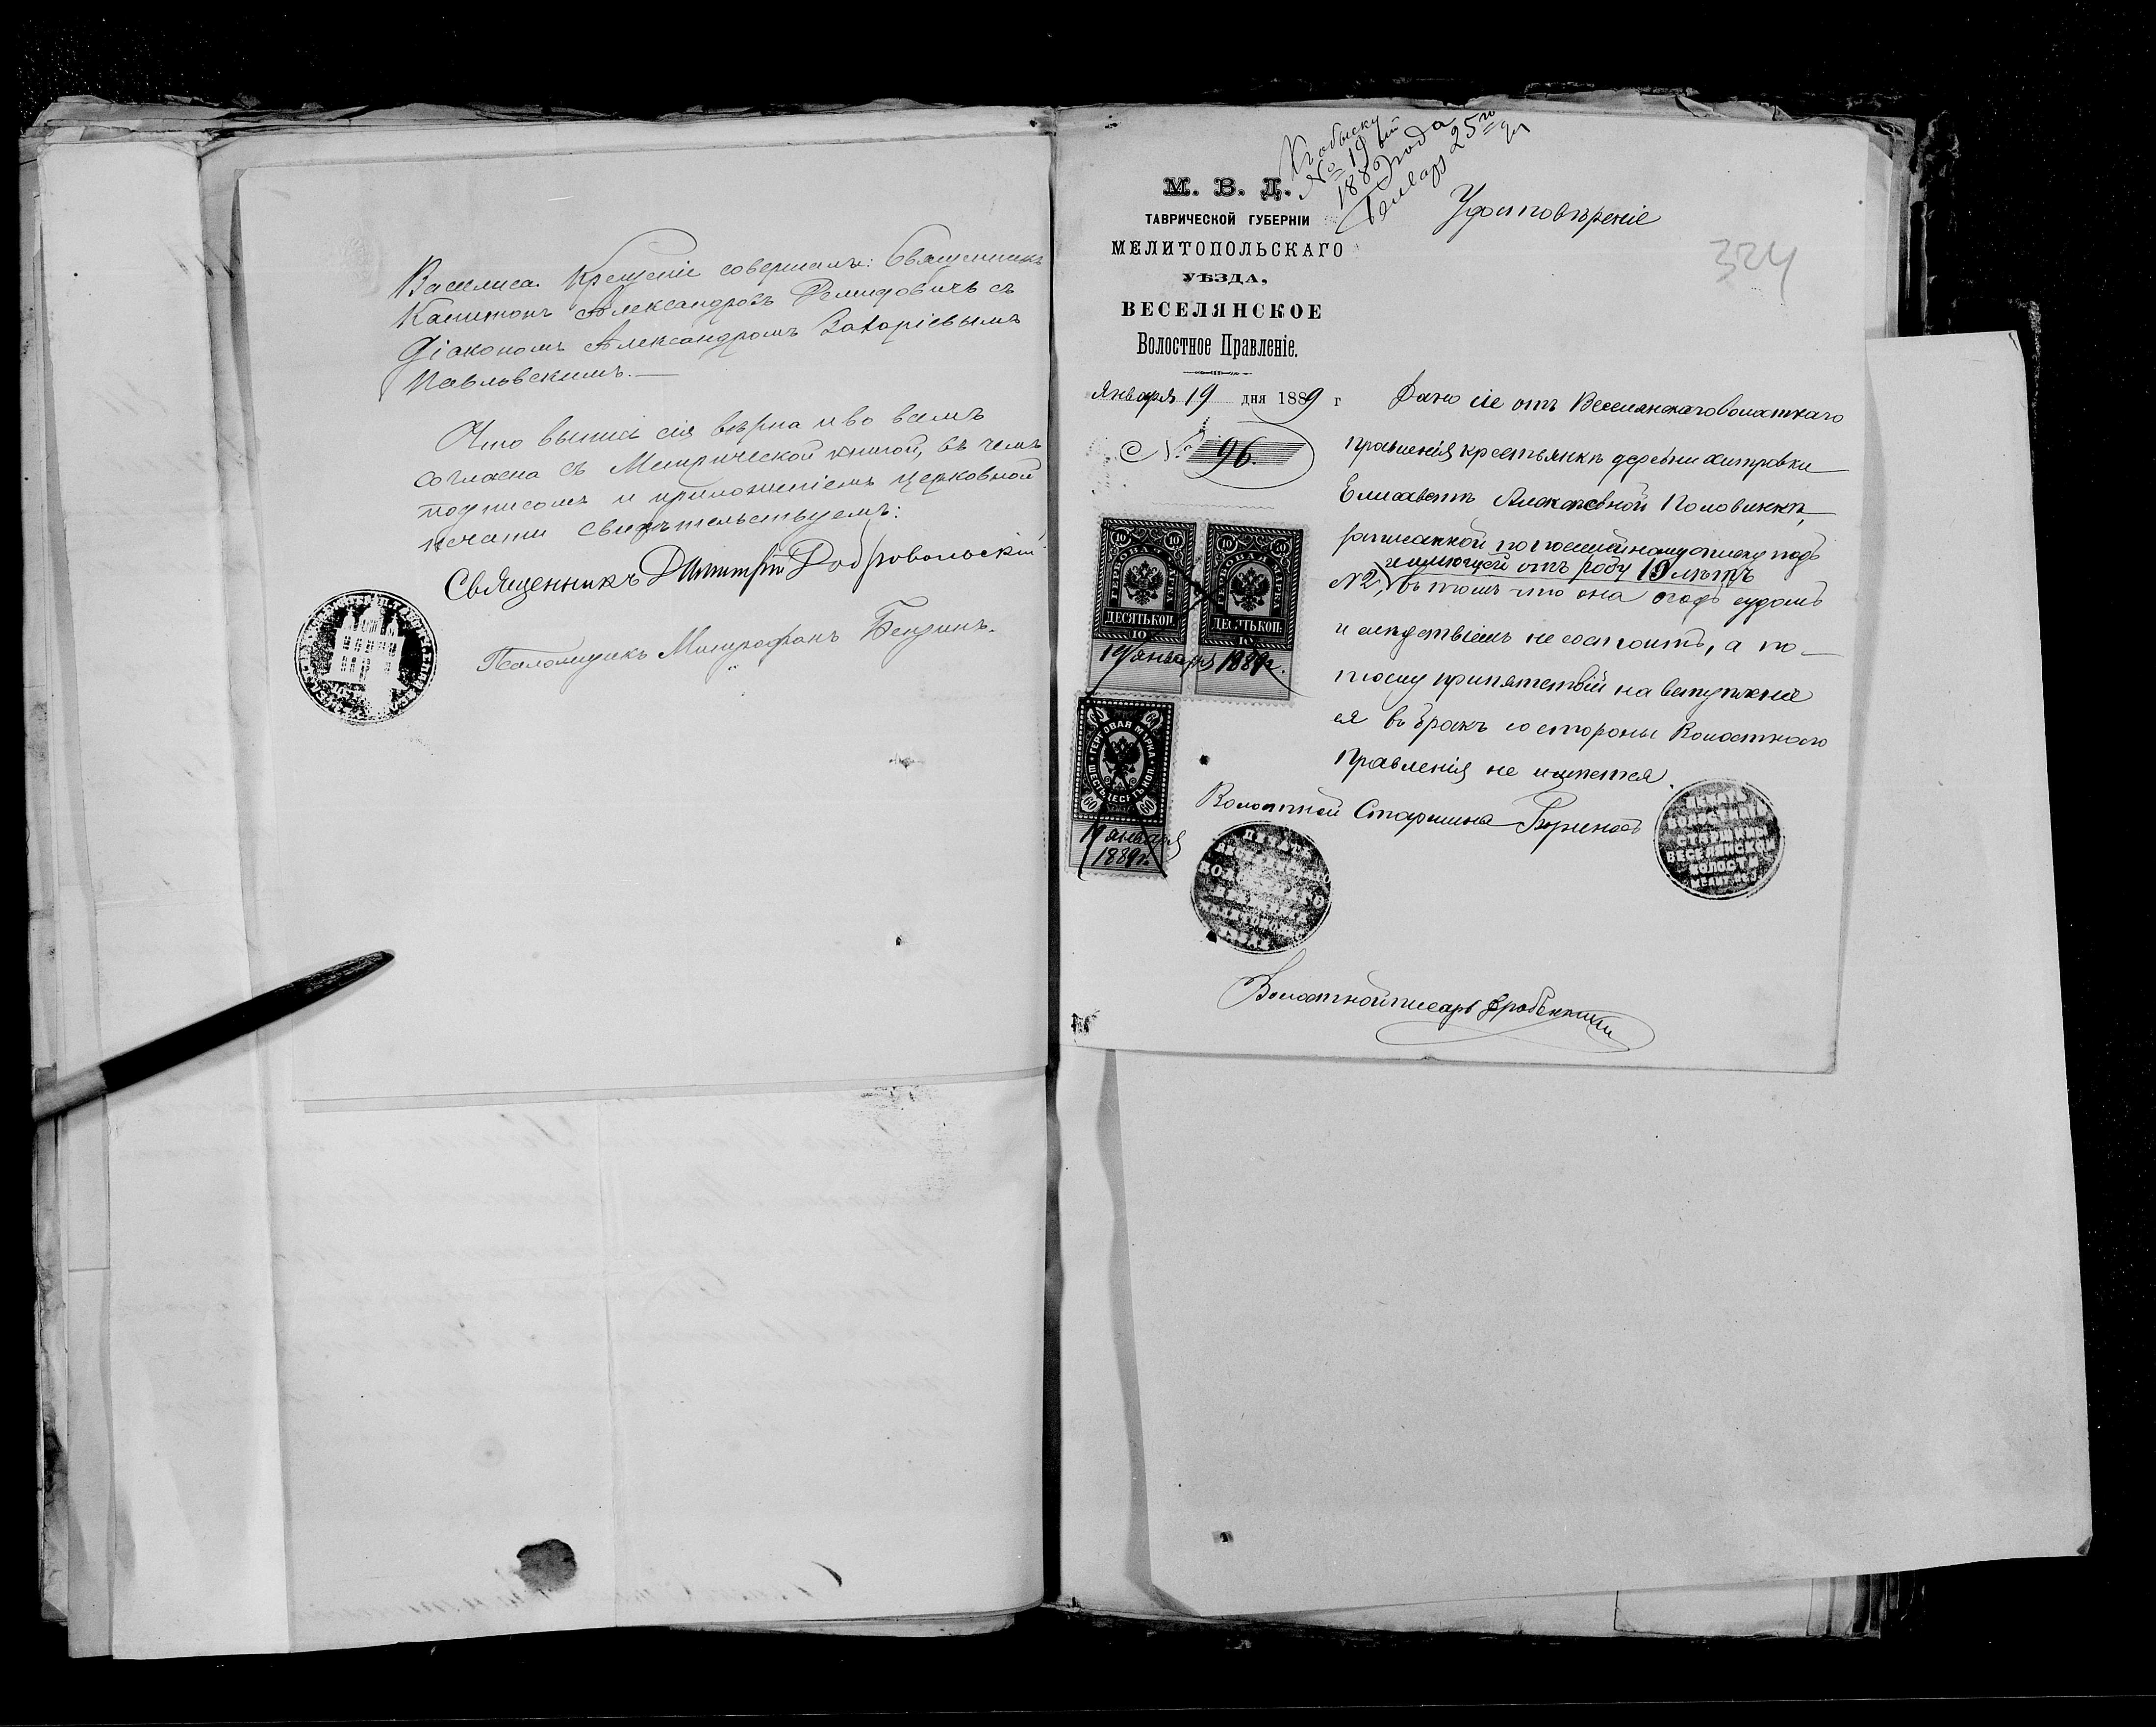 Василиса. Крещеніе совершалъ: Священникъ
Капитонъ Александровъ Демидовичъ съ
Діакономъ Александромъ Захаріевымъ
Павловскимъ.—
Что выпись сія вѣрна и во всемъ
согласна съ Метрической книгой, въ чемъ
подписомъ и приложеніемъ церковной
печати свидѣтельствуемъ:
Священникъ Димитрій Добровольскій
Псаломщикъ Митрофанъ Бензинъ.
Къ обыску
№ 19 ый
1889 года
Января 25 го дн
М. В. Д.
ТАВРИЧЕСКОЙ ГУБЕРНІИ
МЕЛИТОПОЛЬСКАГО
УѢЗДА,
ВЕСЕЛЯНСКОЕ
Волостное Правленіе.
Января 19 дня 1889 г
№ 96.
Удостовѣреніе
324
Дано сіе отъ Веселянскаго волостнаго
правленія крестьянкѣ деревни Хитровки
Елисаветѣ Алексѣевной Половинкѣ,
записанной по посемейному списку подъ
имѣющей отъ роду 19 лѣтъ
№ 2, въ томъ что она подъ судомъ
и слѣдствіемъ не состоитъ, а по-
тому припятствій на вступленіе
ея въ бракъ со стороны Волостнаго
Правленія не имѣется.
ГЕРБОВАЯ МАРКА
ДЕСЯТЬ КОП.
10
ГЕРБОВАЯ МАРКА
ДЕСЯТЬ КОП.
10
19 января 1889 г.
60 60
ГЕРБОВАЯ МАРКА
ШЕСТЬДЕСЯТЪ КОП.
60 60
19 января
1889 г.
Волостной Старшина
ПЕЧАТЬ
ВОЛОСТНАГО
СТАРШИНЫ
ВЕСЕЛЯНСКОЙ
ВОЛОСТИ
ПЕЧАТЬ
Волостной писарь